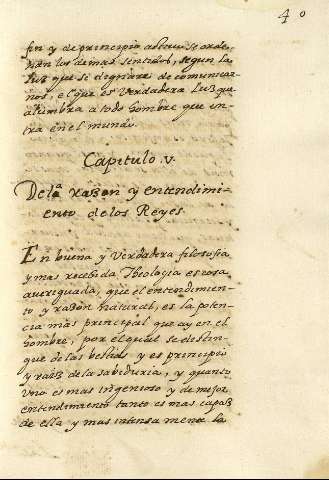 40
fin y de principio a los que se orde-
nan los demas sentidos, segun la
luz que se dignare de comunicar-
nos, el que es Verdadera Luz que
alumbra a todo hombre que en-
tra en el mundo.
Capitulo. v.
De la raZon y entendimi-
ento de los Reyes.
En buena y Verdadera filosofia
y mas recebida Theologia es cosa
aueriguada, que el entendimien-
to y razon natural, es la poten-
cia mas principal que ay en el
hombre, por el qual se destin-
que de las bestias y es principio
y raiz de la sabiduria, y quanto
Uno es mas ingenioso y de mejor
entendimiento tanto es mas capaz
de ella y mas intensa mente la